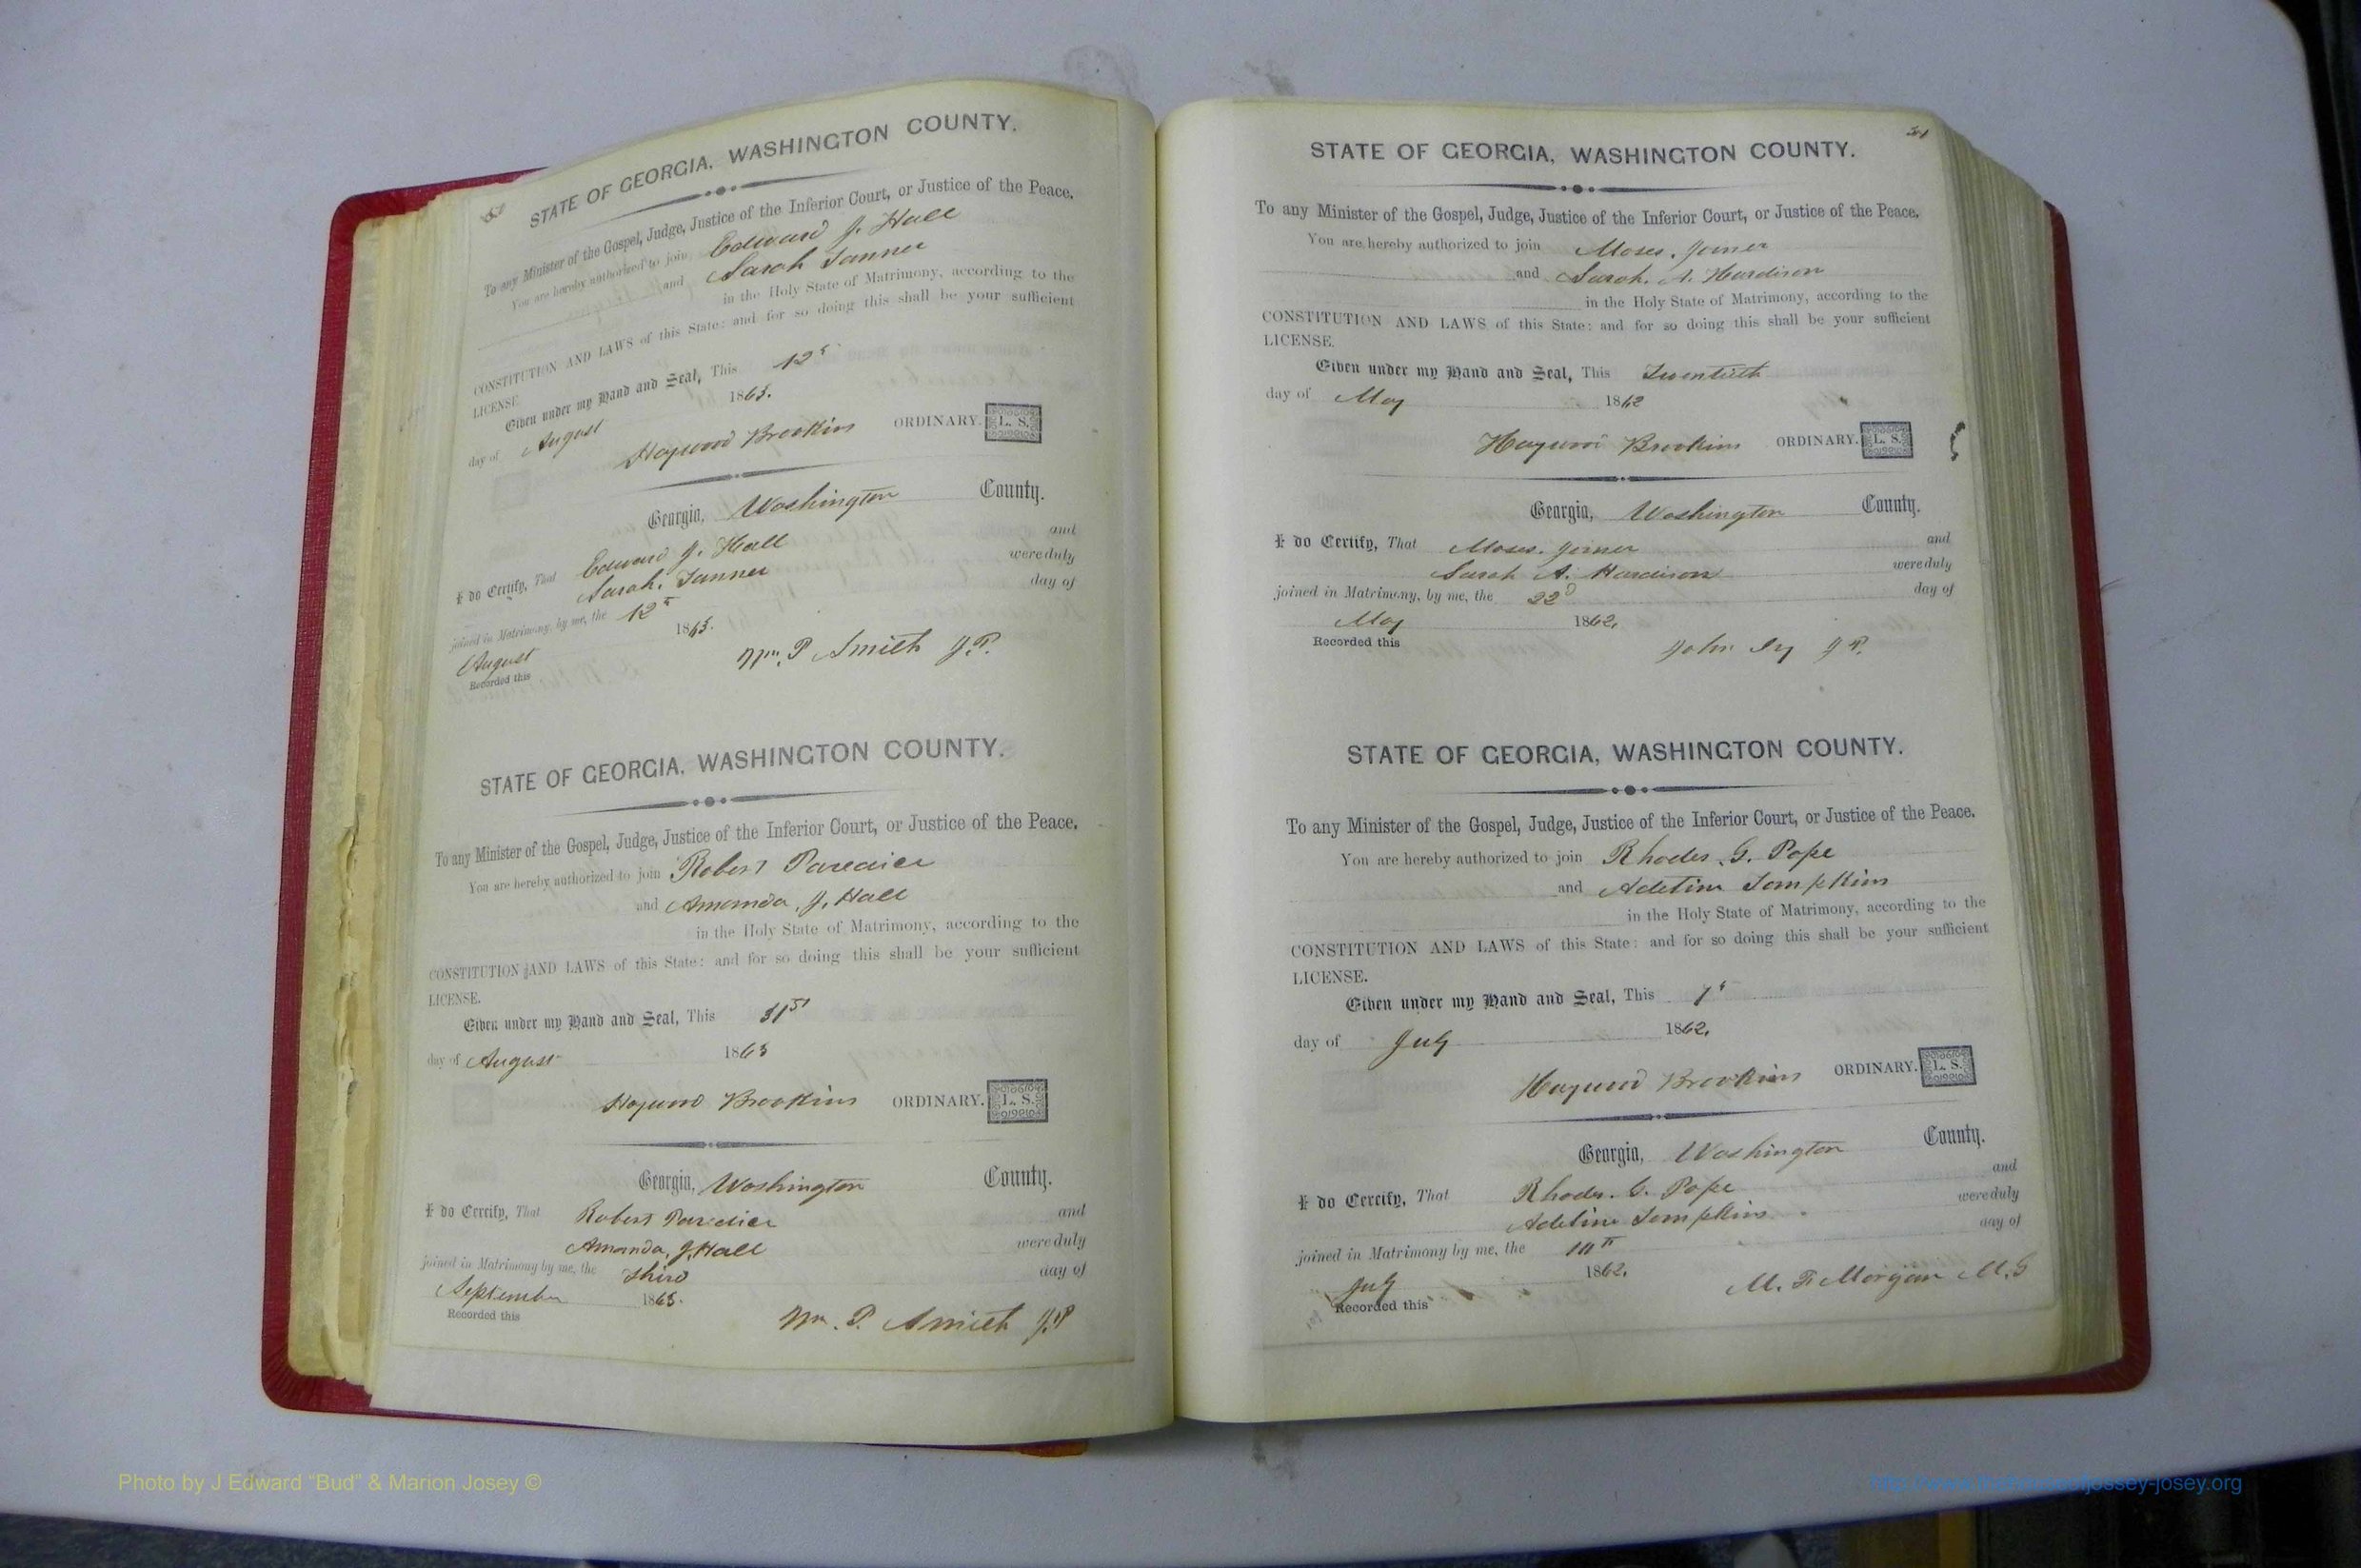 STATE OF GEORGIA, WASHINGTON COUNTY.
To any Minister of the Gospel, Judge, Justice of the Inferior Court, or Justice of the Peace.
You are hereby authorized to join Edward J. Hall
and Sarah Tanner
in the Holy State of Matrimony, according to the
CONSTITUTION AND LAWS of this State: and for so doing this shall be your sufficient
LICENSE.
Given under my Hand and Seal, This 12
day of August 1863.
Haywood Brookins ORDINARY. L. S.
Georgia, Washington County.
I do Certify, That Edward J. Hall and
Sarah. Tanner were duly
joined in Matrimony, by me, the 12 day of
August 1863.
Recorded this
Wm. P Smith J.P.
STATE OF GEORGIA, WASHINGTON COUNTY.
To any Minister of the Gospel, Judge, Justice of the Inferior Court, or Justice of the Peace.
You are hereby authorized to join Robert
and Amanda, J. Hall
in the Holy State of Matrimony, according to the
CONSTITUTION AND LAWS of this State: and for so doing this shall be your sufficient
LICENSE.
Given under my Hand and Seal, This 31st
day of August 1863
Haywood Brookins ORDINARY. L. S.
Georgia, Washington County.
I do Certify, That Robert and
Amanda, J. Hall were duly
joined in Matrimony by me, the Third day of
September 1863.
Recorded this
Wm. P. Smith J.P
STATE OF GEORGIA, WASHINGTON COUNTY.
To any Minister of the Gospel, Judge, Justice of the Inferior Court, or Justice of the Peace.
You are hereby authorized to join Moses. Joiner
and Sarah. A. Hardison
in the Holy State of Matrimony, according to the
CONSTITUTION AND LAWS of this State: and for so doing this shall be your sufficient
LICENSE.
Given under my Hand and Seal, This Twentieth
day of May 1862
Haywood Brookins ORDINARY. L. S.
Georgia, Washington County.
I do Certify, That Moses. Joiner and
Sarah A. Hardison were duly
joined in Matrimony, by me, the 22d day of
May 1862.
Recorded this
John Ivy J P.
STATE OF GEORGIA, WASHINGTON COUNTY.
To any Minister of the Gospel, Judge, Justice of the Inferior Court, or Justice of the Peace.
You are hereby authorized to join Rhodes. G. Pope
and Adeline Tompkins
in the Holy State of Matrimony, according to the
CONSTITUTION AND LAWS of this State: and for so doing this shall be your sufficient
LICENSE.
Given under my Hand and Seal, This
day of July 1862.
Haywood Brookins ORDINARY. L. S.
Georgia, Washington County.
I do Certify, That Rhodes. G. Pope and
Adeline Tompkins were duly
joined in Matrimony by me, the 10th day of
July 1862.
Recorded this
M. F. Morgan M. G
Photo by J Edward "Bud" & Marion Josey ©